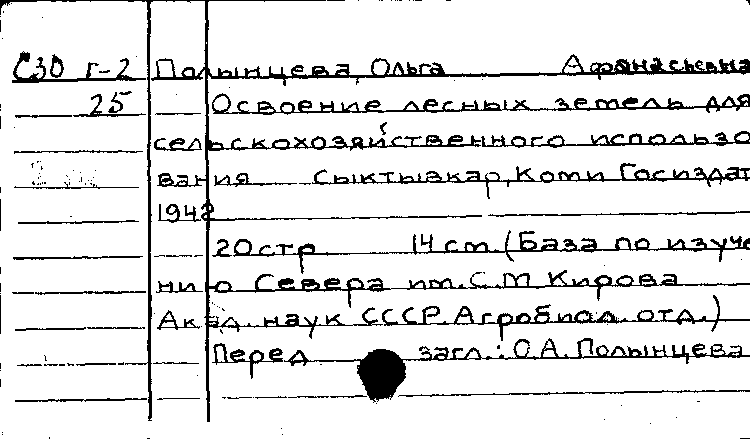 СЗО г-2 Полынцева, Ольга Афанасьевна
25 Освоение лесных земель для
сельскохозяйственного использо
вания Сыктывкар, Коми Госиздат
1948
20 стр 14 см. (База по изуче
нию Севера им. С.М Кирова
Акад. наук СССР. Агробиол. отд.)
Перед загл.: О.А. Полынцева